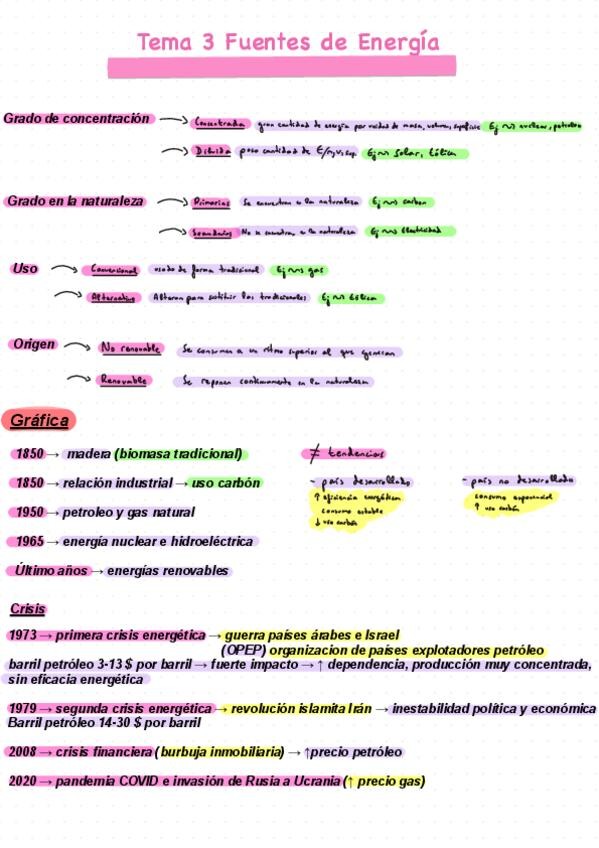 Tema 3 Fuentes de Energía
Grado de concentración → Concentrada gran cantidad de energía por unidad de masa, volumen, superficie Ej ~> nuclear, petroleo
→ poca cantidad de E/m,v,sup. Ej ~> Solar, Eólica
Grado en la naturaleza → Primarias Se encuentran en la naturaleza Ej ~> carbon
→ Secundarias No se encuentran en la naturaleza Ej ~> Electricidad
Uso → Convencional usado de forma tradicional Ej ~> gas
→ Alternativa para sustituir las tradicionales Ej ~> Eólica
Origen → No renovable Se consumen a un ritmo superior al que generan
→ Renovable Se reponen continuamente en la naturaleza
Gráfica
1850 → madera (biomasa tradicional) ≠ tendencias
1850 → relación industrial → uso carbón - país desarrollado - país no desarrollado
↑ eficiencia energética consumo exponencial
1950 → petroleo y gas natural consumo estable ↑ uso carbón
↓ uso carbón
1965 → energía nuclear e hidroeléctrica
Último años → energías renovables
Crisis
1973 → primera crisis energética → guerra países árabes e Israel
(OPEP) organizacion de países explotadores petróleo
barril petróleo 3-13 $ por barril → fuerte impacto → ↑ dependencia, producción muy concentrada,
sin eficacia energética
1979 → segunda crisis energética → revolución islamita Irán → inestabilidad política y económica
Barril petróleo 14-30 $ por barril
2008 → crisis financiera (burbuja inmobiliaria) → ↑precio petróleo
2020 → pandemia COVID e invasión de Rusia a Ucrania (↑ precio gas)